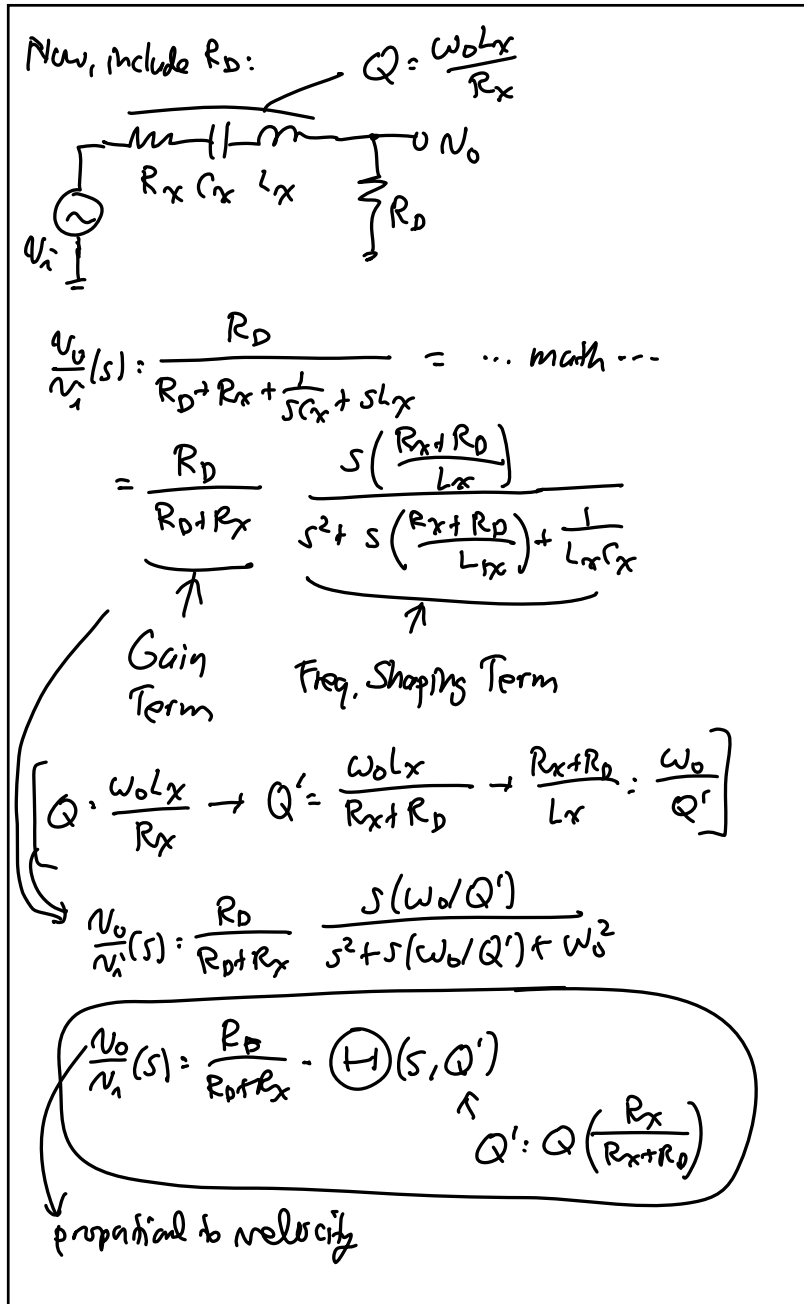 Now, include R_D: Q = ω₀Lx/Rx
Rx Cx Lx
v₀
R_D
vᵢ
v₀/vᵢ(s) = R_D/(R_D + Rx + 1/(sCx) + sLx) = ... math ...
= R_D/(R_D + Rx) s((Rx + R_D)/Lx)/(s² + s((Rx + R_D)/Lx) + 1/(LxCx))
Gain Term
Freq. Shaping Term
[Q = ω₀Lx/Rx → Q' = ω₀Lx/(Rx + R_D) → (Rx + R_D)/Lx = ω₀/Q']
v₀/vᵢ(s) = R_D/(R_D + Rx) s(ω₀/Q')/(s² + s(ω₀/Q') + ω₀²)
v₀/vᵢ(s) = R_D/(R_D + Rx) · Ⓗ(s, Q')
Q' = Q(Rx/(Rx + R_D))
propational to velocity